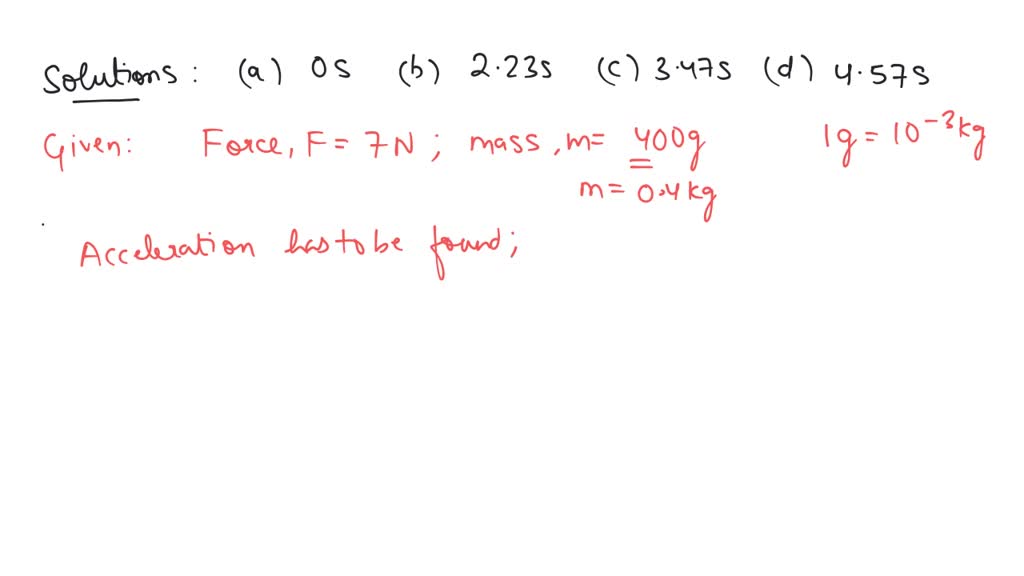 Solutions : (a) 0s (b) 2.23s (c) 3.47s (d) 4.57s
Given: Force, F = 7N ; mass, m = 400g 1g = 10⁻³kg
m = 0.4kg
Acceleration has to be found;